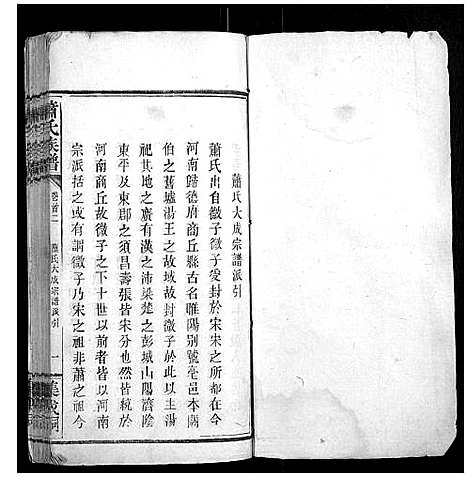 蕭氏大成宗譜派引
蕭氏出自微子微子爰封於宋宋之所都在今
河南歸德府商丘縣古名睢陽別號亳邑本閼
伯之舊墟湯王之故域故封微子於此以主湯
祀其地之廣有漢之沛梁楚之彭城山陽濟陰
東平及東郡之須昌壽張皆宋分也然皆統於
河南商丘故微子之下十世以前者皆以河南
宗派括之或有謂微子乃宋之祖非蕭之祖今
蕭氏族譜
卷首二
蕭氏大成宗譜派引
一
集成